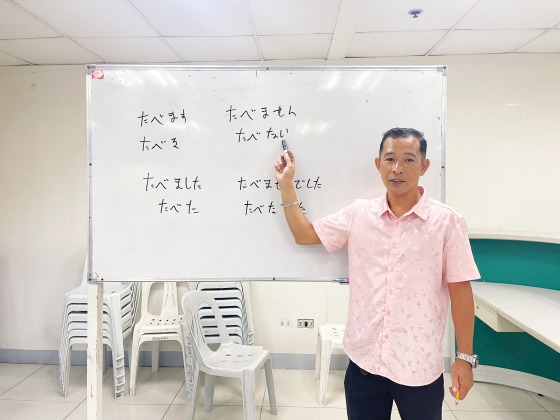 たべます
たべません
たべる
たべない
たべました
たべませんでした
たべた